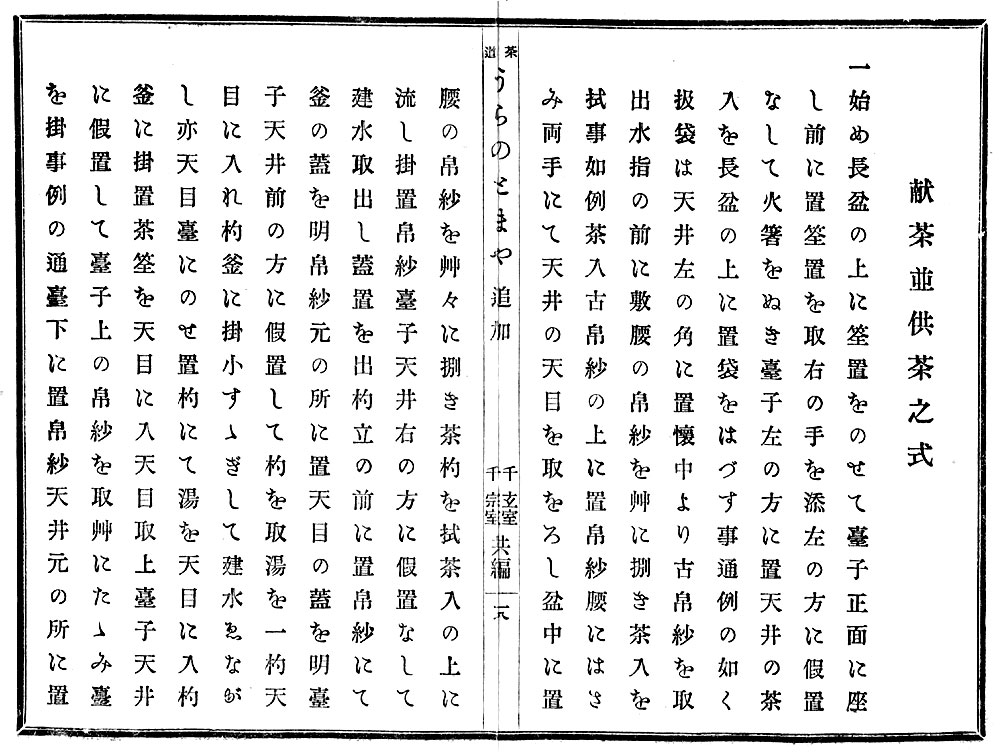 献茶並供茶之式
一始め長盆の上に筌置をのせて臺子正面に座
し前に置筌置を取右の手を添左の方に假置
なして火箸をぬき臺子左の方に置天井の茶
入を長盆の上に置袋をはづす事通例の如く
扱袋は天井左の角に置懷中より古帛紗を取
出水指の前に敷腰の帛紗を艸に捌き茶入を
拭事如例茶入古帛紗の上に置帛紗腰にはさ
み両手にて天井の天目を取をろし盆中に置
茶道
うらのとまや 追加
千玄室
千宗室
共編
一八
腰の帛紗を艸々に捌き茶杓を拭茶入の上に
流し掛置帛紗臺子天井右の方に假置なして
建水取出し蓋置を出杓立の前に置帛紗にて
釜の蓋を明帛紗元の所に置天目の蓋を明臺
子天井前の方に假置して杓を取湯を一杓天
目に入れ杓釜に掛小すゝぎして建水ゑなが
し亦天目臺にのせ置杓にて湯を天目に入杓
釜に掛置茶筌を天目に入天目取上臺子天井
に假置して臺子上の帛紗を取艸にたゝみ臺
を掛事例の通臺下に置帛紗天井元の所に置